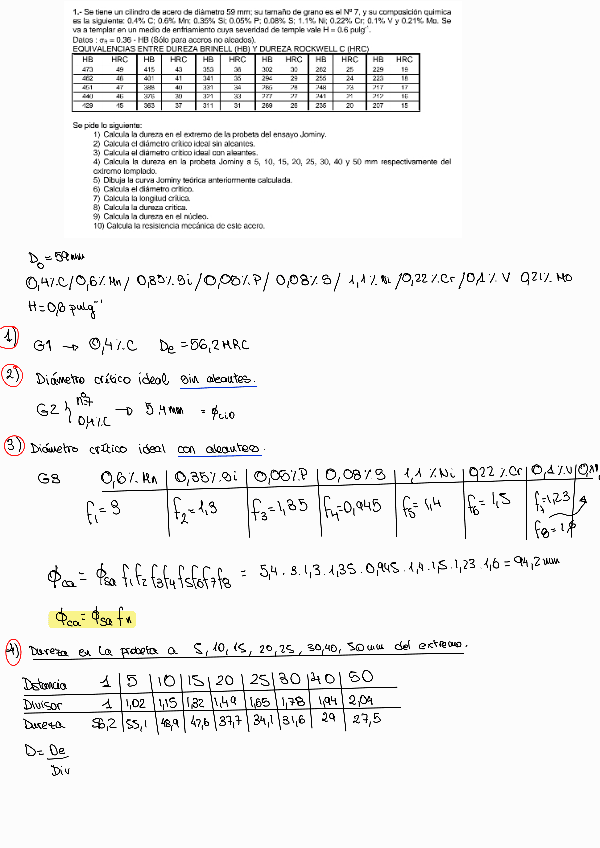 1.- Se tiene un cilindro de acero de diámetro 59 mm; su tamaño de grano es el Nº 7, y su composición química
es la siguiente: 0.4% C; 0.6% Mn; 0.35% Si; 0.05% P; 0.08% S; 1.1% Ni; 0.22% Cr; 0.1% V y 0.21% Mo. Se
va a templar en un medio de enfriamiento cuya severidad de temple vale H = 0.6 pulg⁻¹.
Datos : σR = 0.36 · HB (Sólo para aceros no aleados).
EQUIVALENCIAS ENTRE DUREZA BRINELL (HB) Y DUREZA ROCKWELL C (HRC)
HB HRC HB HRC HB HRC HB HRC HB HRC HB HRC
473 49 415 43 353 36 302 30 262 25 229 19
462 48 401 41 341 35 294 29 255 24 223 18
451 47 388 40 331 34 285 28 248 23 217 17
440 46 375 39 321 33 277 27 241 21 212 16
429 45 363 37 311 31 269 26 235 20 207 15
Se pide lo siguiente:
1) Calcula la dureza en el extremo de la probeta del ensayo Jominy.
2) Calcula el diámetro crítico ideal sin aleantes.
3) Calcula el diámetro crítico ideal con aleantes.
4) Calcula la dureza en la probeta Jominy a 5, 10, 15, 20, 25, 30, 40 y 50 mm respectivamente del
extremo templado.
5) Dibuja la curva Jominy teórica anteriormente calculada.
6) Calcula el diámetro crítico.
7) Calcula la longitud crítica.
8) Calcula la dureza crítica.
9) Calcula la dureza en el núcleo.
10) Calcula la resistencia mecánica de este acero.
D₀ = 59 mm
0,4%C/0,6% Mn/ 0,35%Si/0,05%P/ 0,08%S/ 1,1% Ni/0,22%Cr/0,1% V 0,21% Mo
H = 0,6 pulg⁻¹
1) G1 → 0,4%C De = 56,2 HRC
2) Diámetro crítico ideal sin aleantes.
G2 } nº7 0,4%C → 5.4 mm = ϕcio
3) Diámetro crítico ideal con aleantes.
G3 0,6% Mn | 0,35%Si | 0,05%P | 0,08%S | 1,1%Ni | 0,22 %Cr | 0,1%V
f₁=3 f₂=1,3 f₃=1,35 f₄=0,945 f₅=1,4 f₆=1,5 f₇=1,23
f₈=1,6
ϕca = ϕsa f₁f₂f₃f₄f₅f₆f₇f₈ = 5,4 . 3. 1,3. 1,35. 0,945. 1,4. 1,5. 1,23. 1,6 = 94,2mm
ϕca = ϕsa fn
4) Dureza en la probeta a 5, 10, 15, 20, 25, 30, 40, 50 mm del extremo.
Distancia 1 | 5 | 10 | 15 | 20 | 25 | 30 | 40 | 50
Divisor 1 | 1,02 | 1,15 | 1,32 | 1,49 | 1,65 | 1,78 | 1,94 | 2,04
Dureza 56,2 | 55,1 | 48,9 | 42,6 | 37,7 | 34,1 | 31,6 | 29 | 27,5
D = De
Div